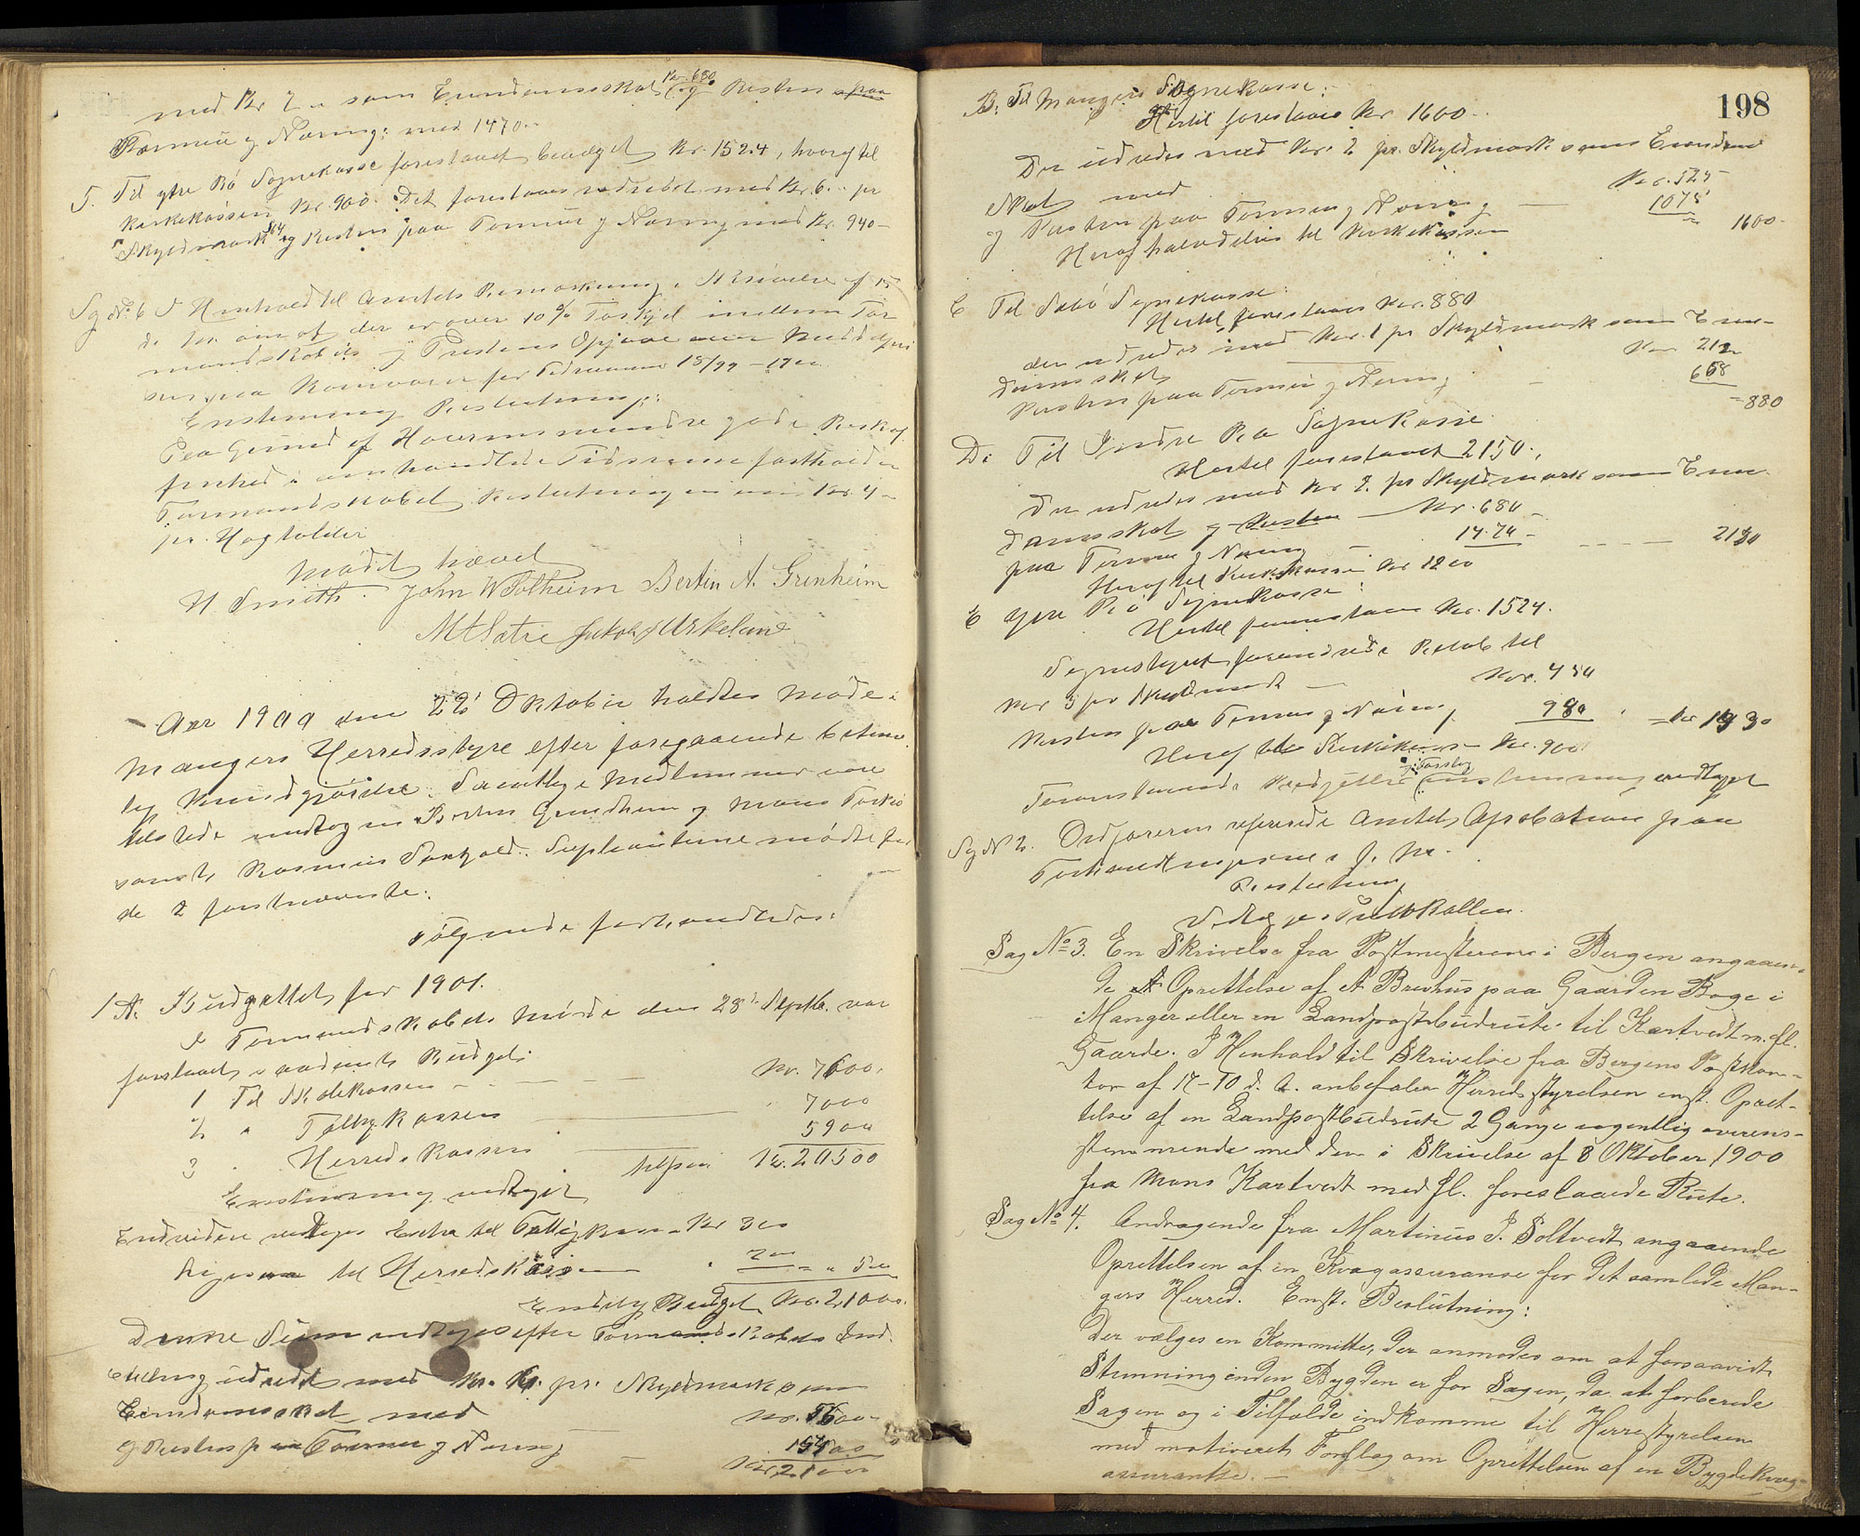 med Kr 2 " som Eiendomsskat Kr. 680 og Resten paa
Formue og Næring: med 1470..
5. Til ytre Bø Sognekasse forestaaet budget Kr. 1524, hvoraf til
Kirkekassen Kr. 900. Det forestaaes udredet med Kr. 6.. pr
Skyldmark og Resten paa Formue og Næring med Kr. 940 -
Sag No 6 I Henhold til Amtets Bemærkning i Skrivelse af 15
ds. om at der er over 10% Forskjel mellem For
mandskabets og Prestens Opgave over
paa for Tidsrummet 18/99 - 1900.
Enstemmig Beslutning:
Paa Grund af Havrens mindre gode Beskaf
fenhed i omhandlede Tidsrum fastholder
Formandskabet Beslutningen om Kr. 4 -
pr. Hektoliter
Mødet hævet
H. Smith. John W Soltheim Berlin A. Grinheim
M Sætre Jakob J Askeland
Aar 1900 den 22' Oktober holdtes Møde i
Mangers Herredsstyre efter foregaaende betime
lig Kundgjørelse. Samtlige Medlemmer var
tilstede undtagen Berlin Grindheim og Mons
samt Rasmus. Suplianterne mødte for
de 2 førstnævnte.
Følgende forhandledes:
1 A. Budgettet for 1901.
I Formandskabets Møde den 28' Septb. var
forslaaet saadant Budget:
1 Til Skolekassen - - - Kr. 7600,
2 " Fattigkassen 7000
3 " Herredskassen 5900
tilsam Kr. 20500
Enstemmig vedtaget
Endvidere vedtages Extra til Fattigkassen Kr 300
ligesaa til Herredskassen " 200 = " 500
Endelig Budget Kr. 21000.
Denne Sum vedtages efter Formandskabets Ind
stilling udredet med Kr. 6. pr. Skyldmark som
Eiendomsskat med Kr. 5600 -
og Resten paa Formue og Næring - 15400
Kr 21000
198
B. Til Mangers Sognekasse:
Hertil forestaaes Kr 1600..
Der udredes med Kr. 2 pr. Skyldmark som Eiendoms
Skat med Kr. 525 -
og Resten paa Formue og Næring - 1075
= 1600 -
Heraf halvdelen til Kirkekassen
C Til Sæbø Sognekasse:
Hertil forestaaes Kr. 880
der udredes med Kr. 1 pr Skyldmark som Eien-
domsskat Kr 212
Resten paa Formue og Næring - 668
= 880
D: Til Indre Bø Sognekasse
Hertil forestaaet 2150.,
Der udredes med Kr 2. pr Skyldmark som Eien
domsskat og Resten - Kr. 680 -
paa Formue og Næring - 1470 - - - - 2150
Heraf til Kirkekassen Kr 1200
E Ytre Bø Sognekasse:
Hertil forestaaes Kr. 1524.
Sognestyret forandrede Beløb til
Kr 3 pr Skyldmark - Kr. 450
Resten paa Formue og Næring 980 = Kr 1430
Heraf til Kirkekassen Kr. 900
Foranstaaende Budgetter: Forslag enstemmig vedtaget
Sag No 2. Ordføreren refererede Amtets Aprobation paa
Beslutning
Vedlægges Protokollen.
Sag No 3. En Skrivelse fra Postmesteren i Bergen angaaen-
de Oprettelse af et Brevhus paa Gaarden Boge i
Manger eller en Landpostbudrute til Kartvedt m. fl.
Gaarde. I Henhold til Skrivelse fra Bergens Postkon-
tor af 17-10 d. A. anbefaler Herredsstyrelsen enst. Opret-
telse af en Landpostbudrute 2 Gange ugentlig overens-
stemmende med den i Skrivelse af 8 Oktober 1900
fra Mons Kartvedt med fl. foreslaaede Rute.
Sag No 4. Andragende fra Martinus J. Soltvedt angaaende
Oprettelsen af en Kvægassuranse for det samlede Man-
gers Herred. Enst. Beslutning:
Der vælges en Kommitte, der anmodes om at forsaavidt
Stemning inden Bygden er for Sagen, da at forberede
Sagen og i Tilfælde indkomme til Herredstyrelsen
med motiveret Forslag om Oprettelsen af en Bygdekvæg-
assuranse. -